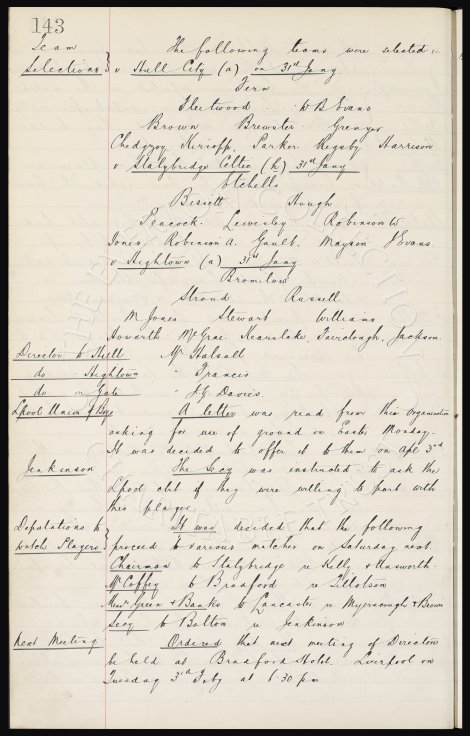 143
Team
Selections
The following teams were selected :-
v Hull City (a) on 31st Jany
Fern
Fleetwood. W B Evans
Brown Brewster Grenyer
Chedgzoy. Kirsopp, Parker. Rigsby Harrison
v Stalybridge Celtic (h) 31st Jany
Etchells
Bissett Hough
Peacock. Lewesley Robinson W
Jones. Robinson A. Gault. Mayson J Evans.
v Hightown (a) 31st Jany.
Bromilow
Stroud Russell
M Jones Stewart Williams
Howarth. McGrae. Kearslake. Fairclough. Jackson.
Director to Hull Mr Halsall
do Hightown " Francis
do Gate " J.G. Davies
Lpool Union of A letter was read from this organisation
asking for use of ground on Easter Monday.
It was decided to offer it to them on Apl 3rd
Jenkinson The Secy was instructed to ask the
Lpool club if they were willing to part with
this player.
Deputations to
watch Players
It was decided that the following
proceed to various matches on Saturday next
Chairman to Stalybridge re Kelly & Unsworth.
Mr Coffey to Bradford re Tillotson
Messrs Green & Banks to Lancaster re Myerscough & Brown
Secy to Bolton re Jenkinson
Next Meeting Ordered that next meeting of Directors
be held at Bradford Hotel. Liverpool on
Tuesday 3rd Feby at 6.30 pm